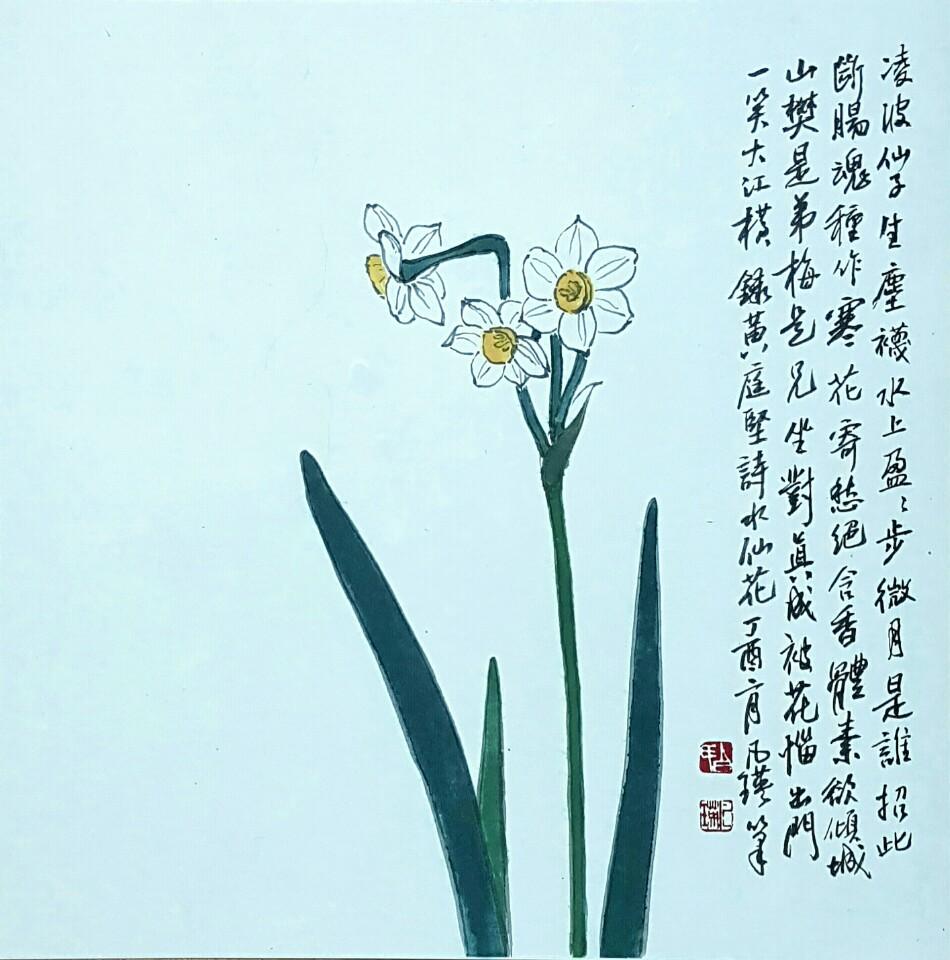 凌波仙子生塵襪水上盈〻步微月是誰招此
斷腸魂種作寒花寄愁絕含香體素欲傾城
山樊是弟梅是兄坐對眞成被花惱出門
一笑大江橫 錄黃庭堅詩水仙花丁酉月凡瑛筆